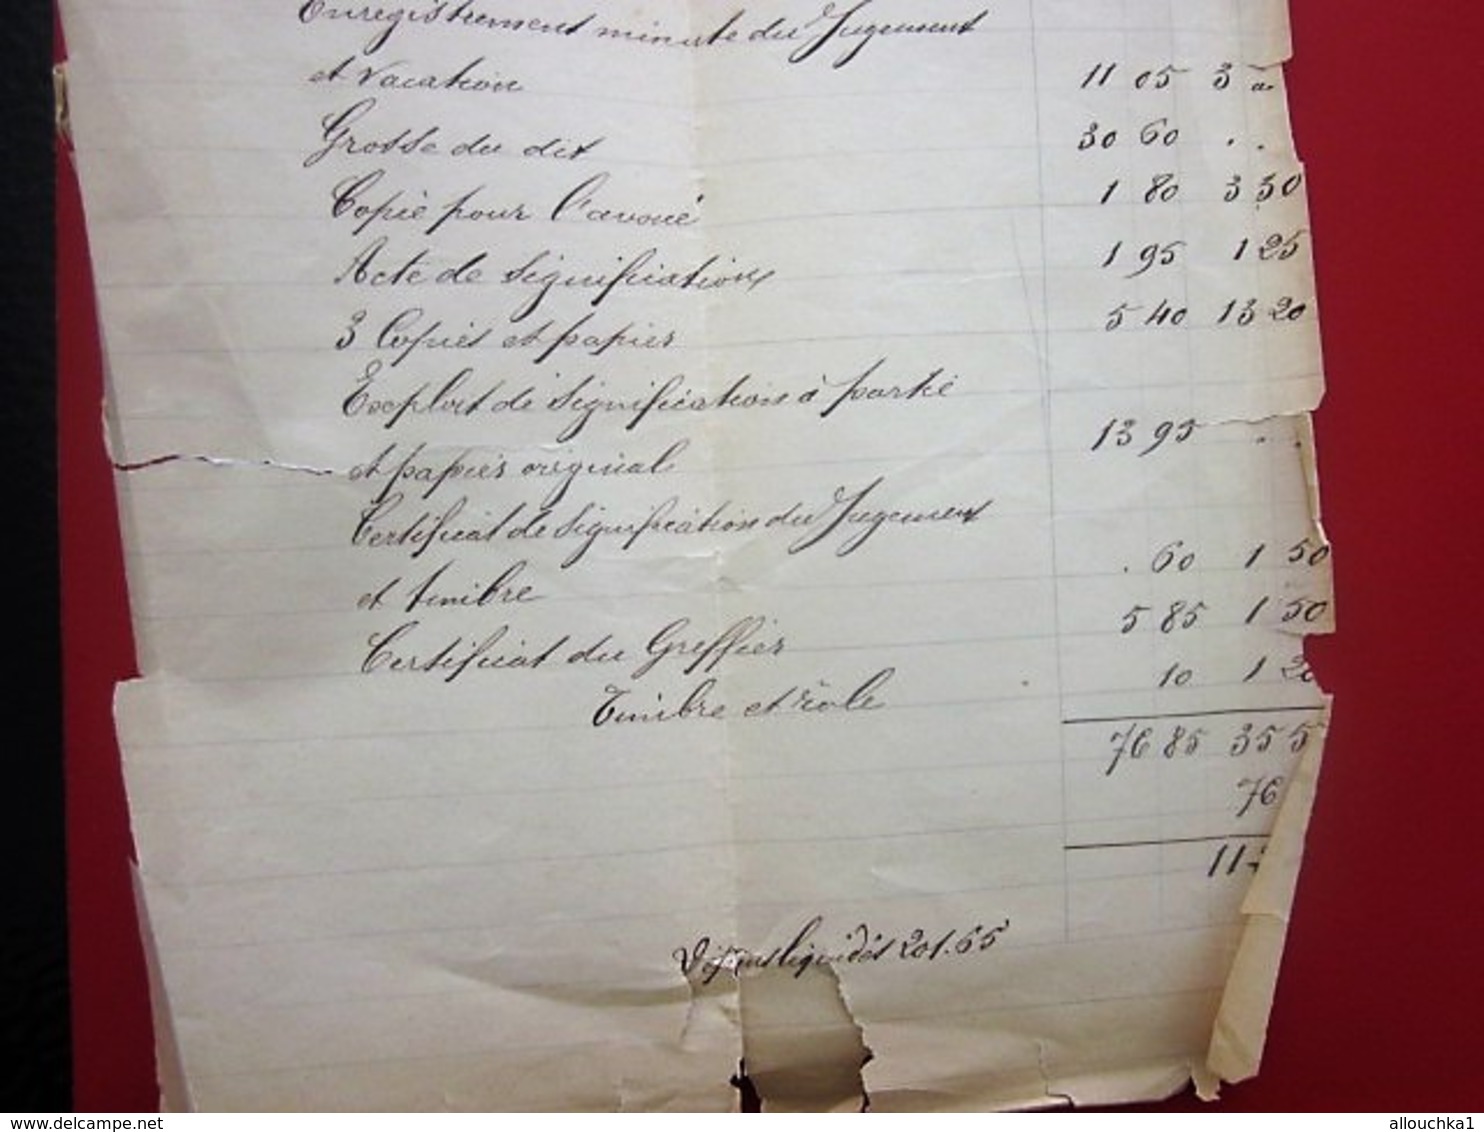 Enregistrement minute du Jugement
et vacation 11 05 3
Grosse du dit 30 60 . .
Copie pour l'avoué 1 80 3 30
Acte de signification 1 95 1 25
3 Copies et papier 5 40 13 20
Exploit de signification à partie
et papier original 13 95 . .
Certificat de signification du Jugement
et timbre . 60 1 50
Certificat du Greffier 5 85 1 50
Timbre et role 10 1 20
76 85 35 5
76
11
Dépens liquidés 201.65
www.delcampe.net
allouchka1